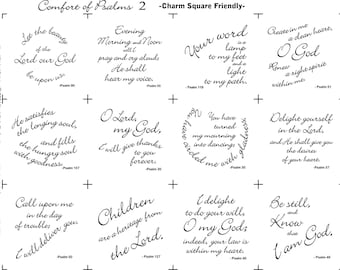 Comfort of Psalms 2 -Charm Square Friendly-
Let the beauty
of the
Lord our God
be upon us.
Psalm 90
Evening
Morning and Noon
will I
pray and cry aloud:
He shall
hear my voice.
Psalm 55
Your word
is a
lamp to
my feet
and a
light to
my path.
Psalm 119
Create in me
a clean heart,
O God
Renew a
right spirit
within me.
Psalm 51
He satisfies
the longing soul,
and fills
the hungry soul
with goodness.
Psalm 107
O Lord,
my God,
I will give thanks
to you
forever.
Psalm 30
You have
turned
my mourning
into dancing;
You have girded me with gladness
Psalm 30
Delight yourself
in the Lord,
and He shall give you
the desires
of your heart.
Psalm 37
Call upon me
in the day
of trouble;
I will deliver you.
Psalm 50
Children
are a heritage from
the Lord.
Psalm 127
I delight
to do your will,
O my God;
indeed, your law is
within my heart.
Psalm 40
Be still,
and
Know
that
I am God.
Psalm 46